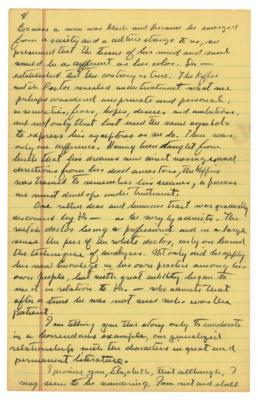 8
Because a man was black and because he emerged
from a society and a culture strange to us, we
presumed that the tissue of his mind and soul
would be as different as his color. Dr—
established that the contrary is true. The Kaffir
witch doctor revealed under treatment what we
perhaps considered our private and personal,
insecurities, fears, hopes, desires, and ambitions,
and not only that but used the same symbols
to express his symptoms as we do. There was
only one difference. Having been taught from
birth that his dreams were direct messages and
directions from his dead ancestors, the Kaffir
was trained to remember his dreams, a process
we must develope under treatment.
One rather dear and humorous trait was gradually
discerned by Dr— as he very
witch doctor being a professional and in a large
sense the peer of the white doctor, early on learned
the technique of analysis. Not only did he apply
his new knowledge in his own practice among his
own people, but with great subtlety began to
use it in relation to Dr— who admits that
after a time he was not sure who was the
patient.
I am telling you this story only to corroborate
in a horrendous example, our
relationship with the characters in great and
permanent literature.
I promise you, Elizabeth, that although, I
may seem to be wandering, I am not and shall